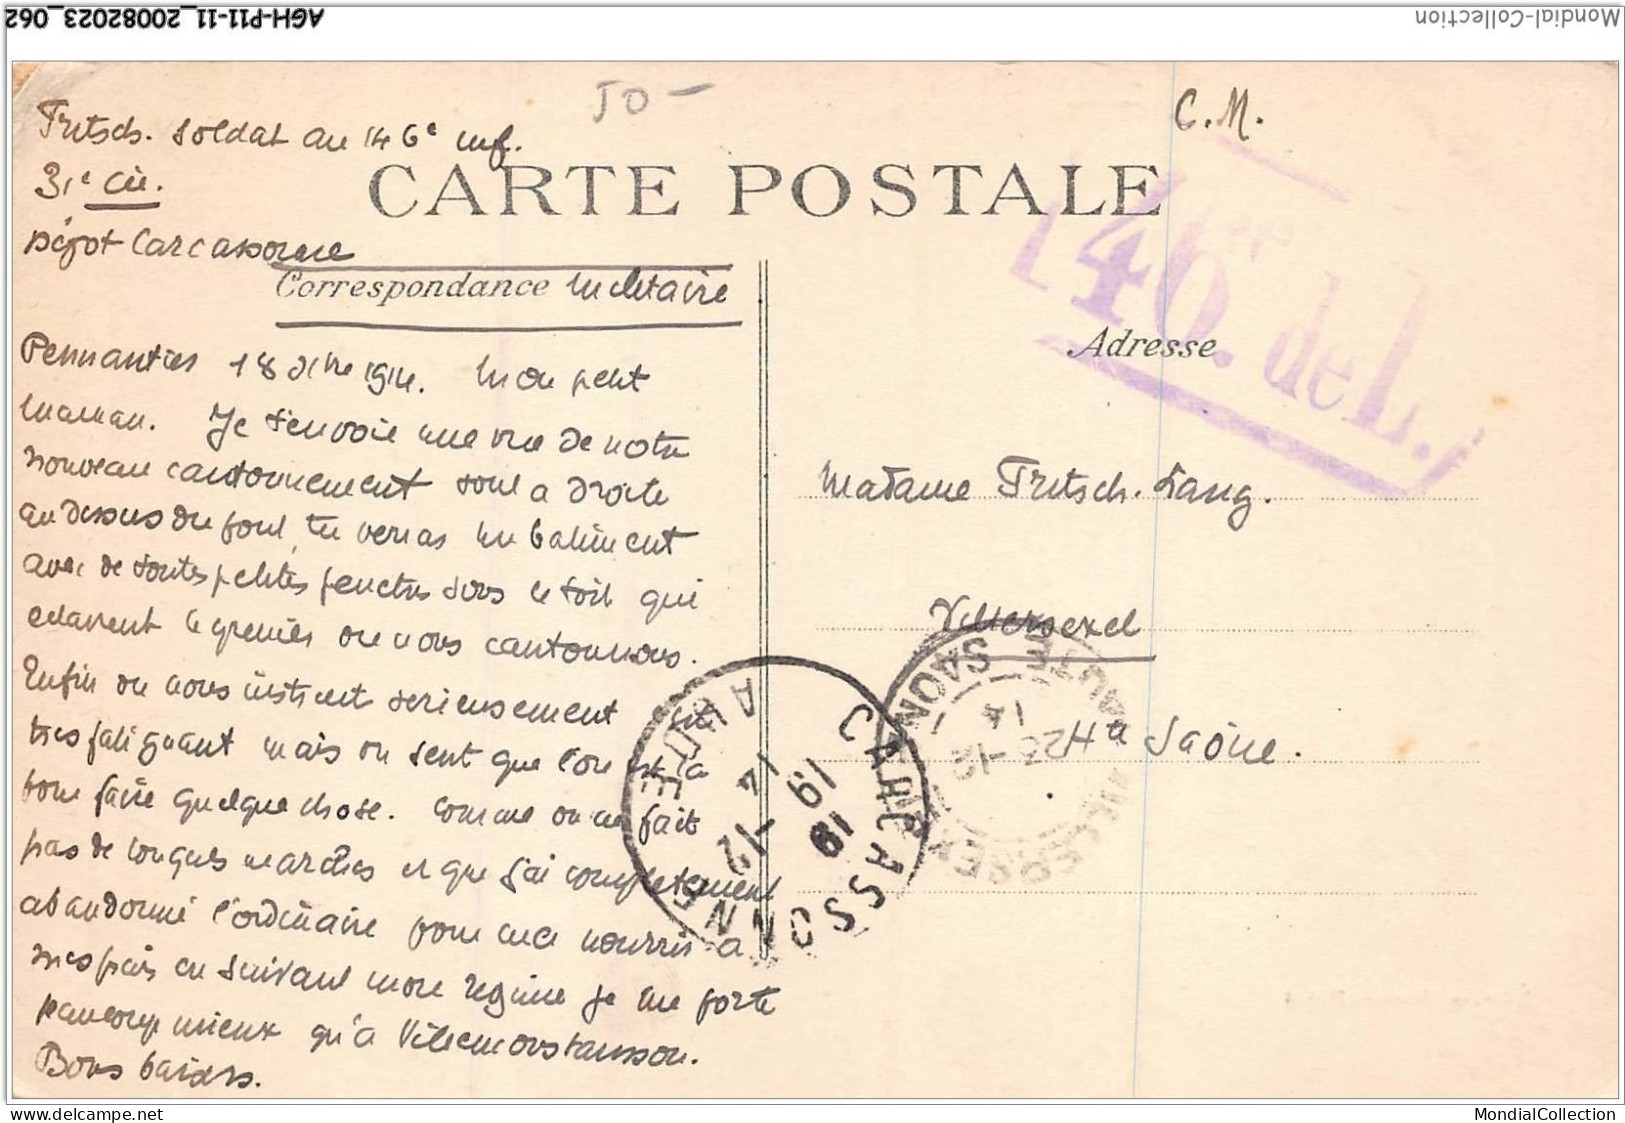 AGH-P11-11_20082023_062
Mondial-Collection
50 -
C.M.
Fritsch. Soldat au 146e inf.
31e Cie.
Dépot Carcassonne
CARTE POSTALE
Correspondance militaire
146. de L.
Adresse
Pennautier 18 Xbre 1914. Mon petit
maman. Je t'envoie une vue de notre
nouveau cantonnement tout a droite
au dessus du pont, tu verras un batiment
avec de toutes petites fenetres sous le toit qui
eclairent le grenier ou nous cantonnons.
Enfin on nous instruit serieusement c'est
tres fatiguant mais on sent que l'on est la
pour faire quelque chose. Comme on ne fait
pas de longues marches et que j'ai completement
abandonné l'ordinaire pour me nourrir a
mes frais en suivant mon regime je me porte
beaucoup mieux qu'a
Bons baisers.
Madame Fritsch. Lang.
Villersexel
Hte Saône.
CARCASSONNE
AUDE
19
18 -12
14
VILLERSEXEL
HAUTE SAONE
23 -12
14
MondialCollection
delcampe.net